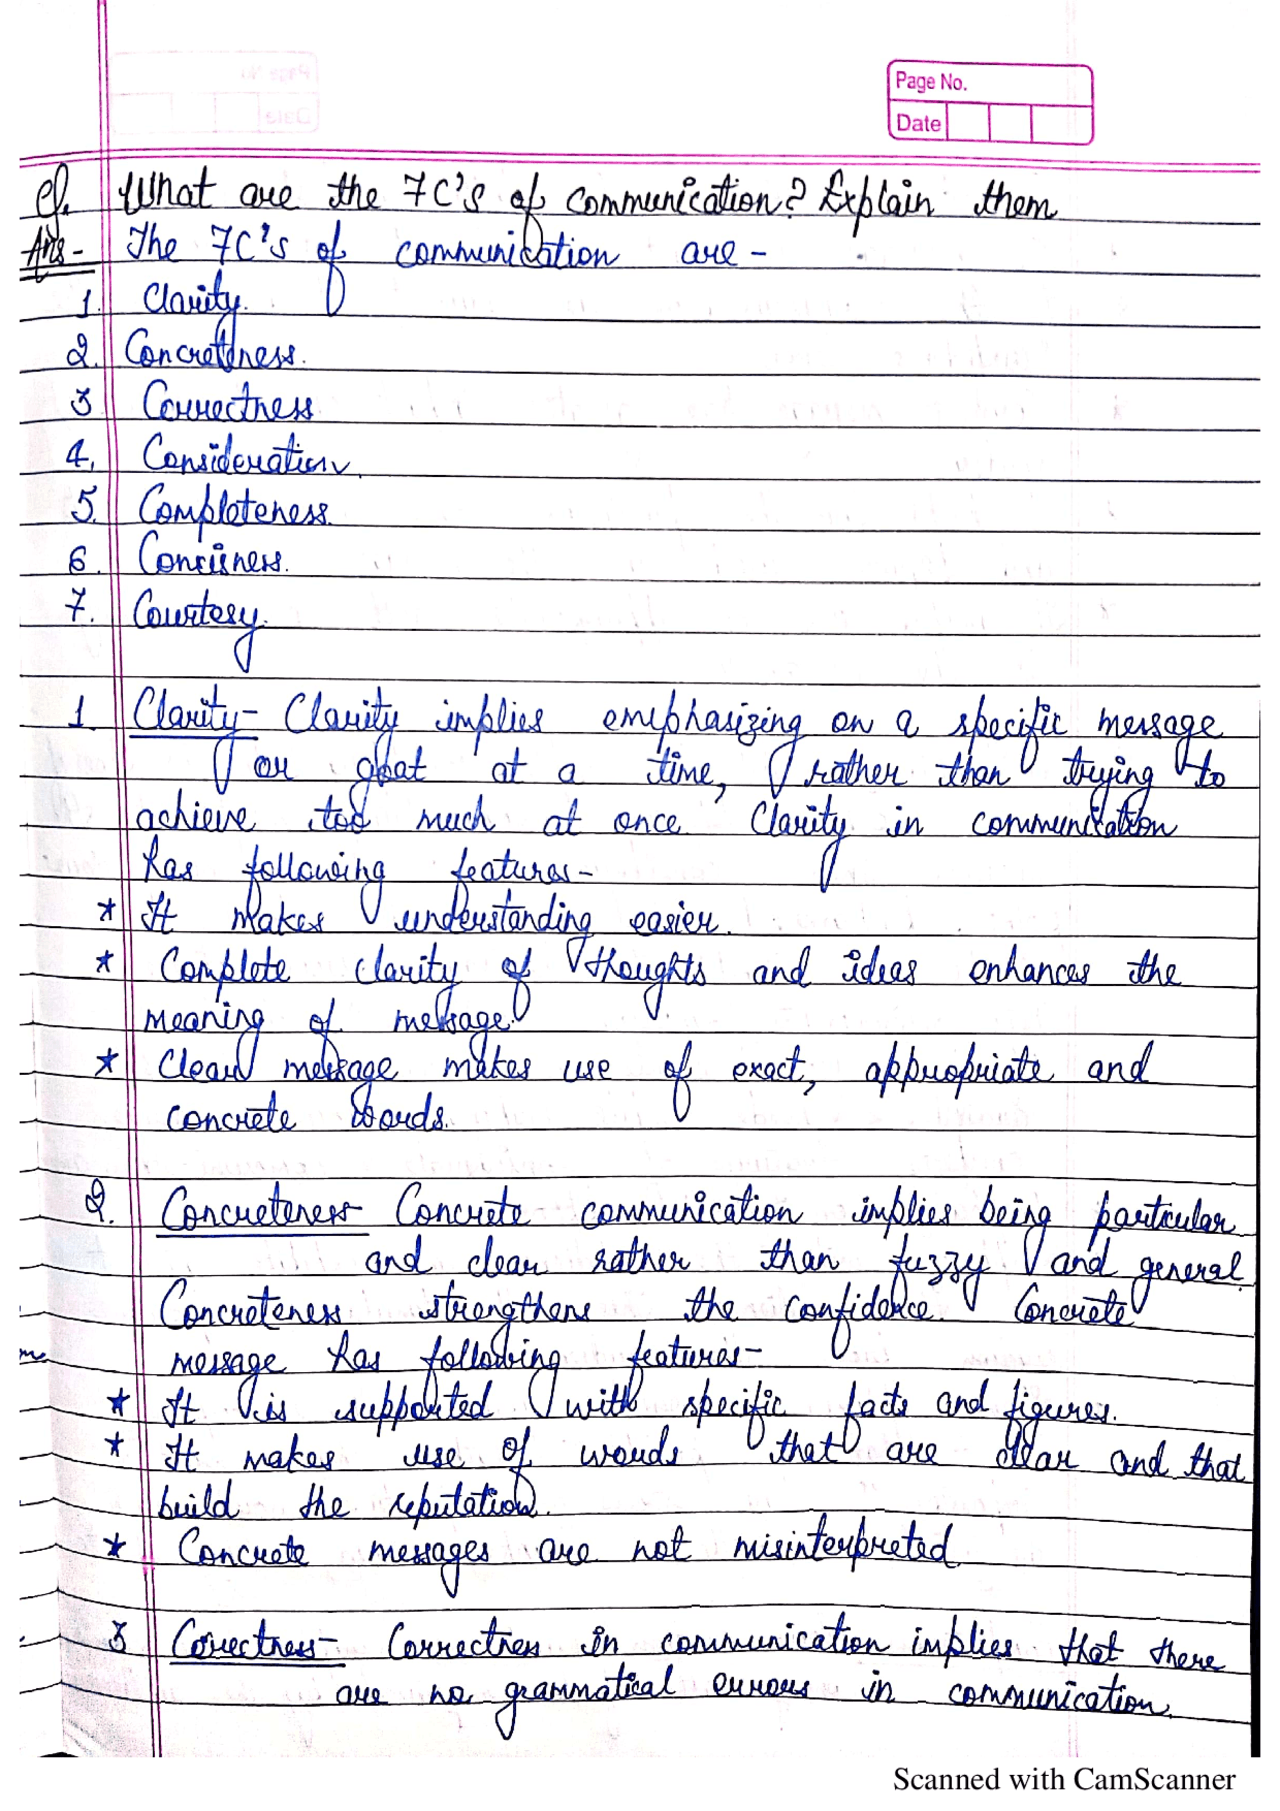 Page No.
Date
Q. What are the 7C's of communication? Explain them
Ans- The 7C's of communication are -
1. Clarity.
2. Concreteness.
3 Correctness
4. Consideration.
5. Completeness.
6. Concisness.
7. Courtesy.
1 Clarity- Clarity implies emphasizing on a specific message
or goal at a time, rather than trying to
achieve too much at once. Clarity in communication
has following features-
* It makes understanding easier.
* Complete clarity of thoughts and ideas enhances the
meaning of message.
* Clear message makes use of exact, appropriate and
concrete words.
2. Concreteness- Concrete communication implies being particular
and clear rather than fuzzy and general.
Concreteness strengthens the confidence. Concrete
message has following features-
* It is supported with specific facts and figures.
* It makes use of words that are clear and that
build the reputation.
* Concrete messages are not misinterpreted.
3 Correctness- Correctness in communication implies that there
are no grammatical errors in communication.
Scanned with CamScanner